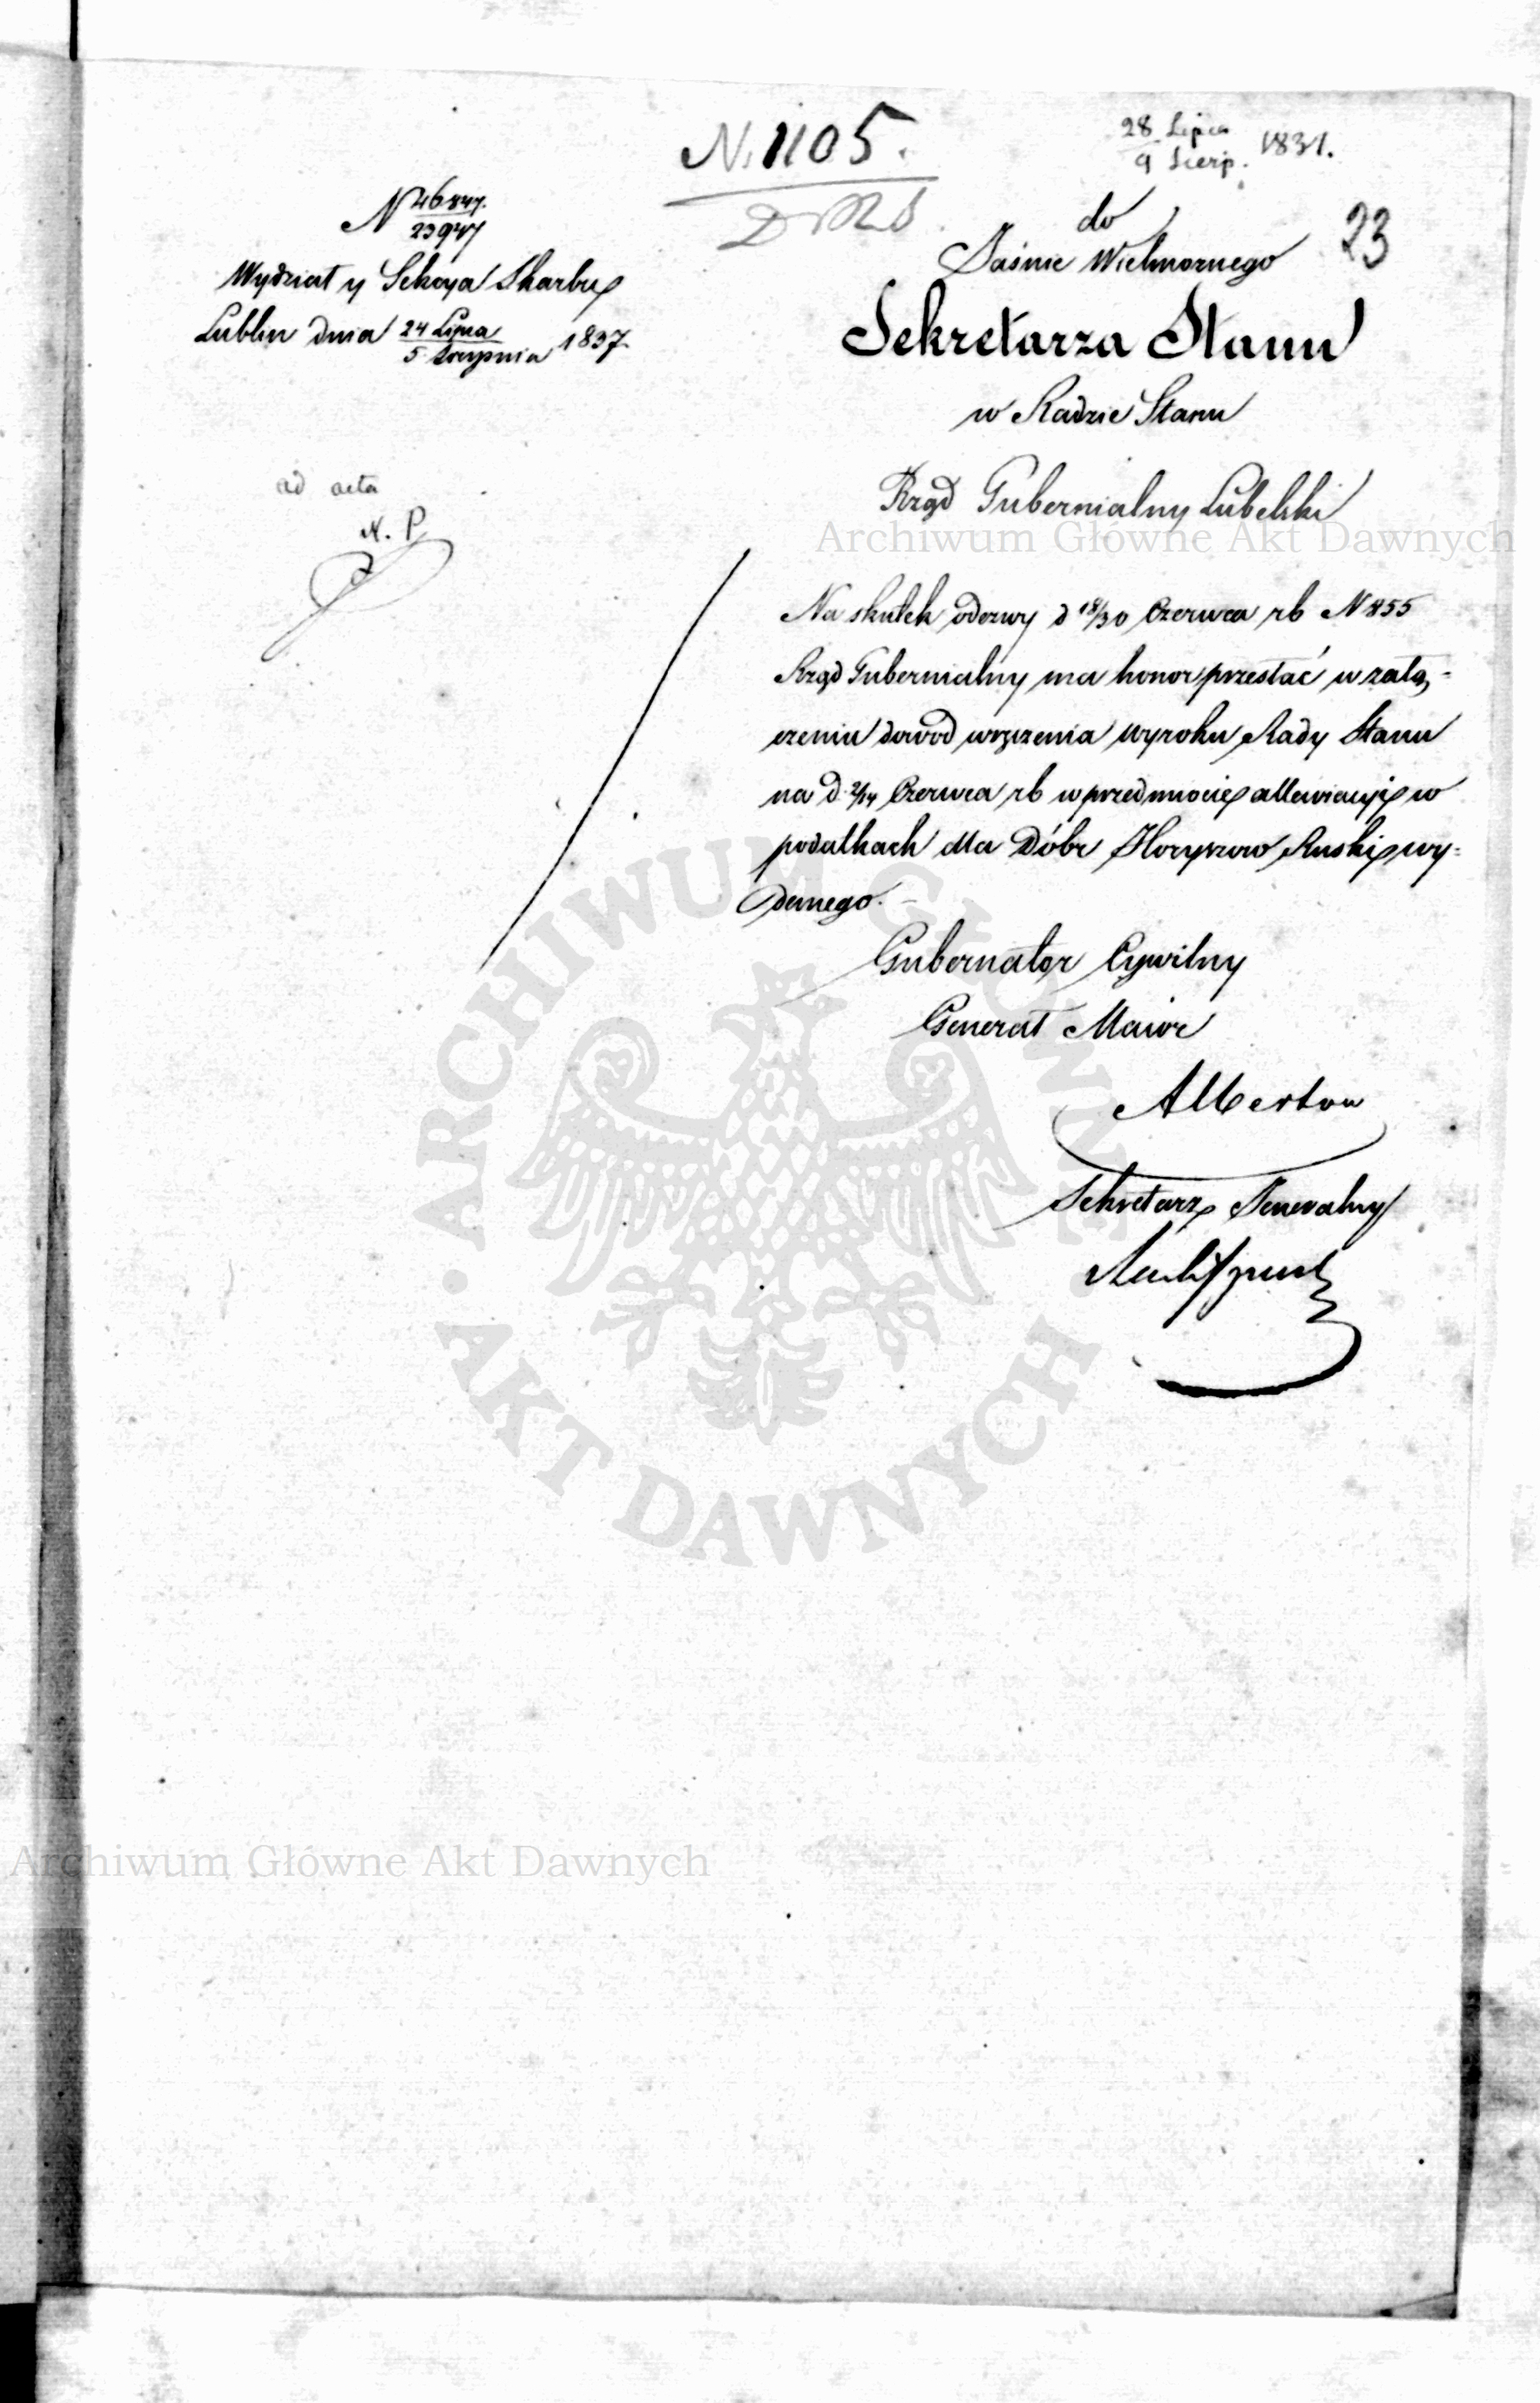 N. 1105.
28 Lipca
9 Sierp. 1837.
23
N 46847.
23947
Wydział y Sekcya Skarbu
Lublin dnia 24 Lipca
5 Sierpnia 1837
do
Jaśnie Wielmożnego
Sekretarza Stanu
w Radzie Stanu
ad acta
N. P.
Rząd Gubernialny Lubelski
Archiwum Główne Akt Dawnych
Na skutek odezwy d 18/30 Czerwca rb N 855
Rząd Gubernialny ma honor przesłać w załą-
czeniu dowod wręczenia wyroku Rady Stanu
na d. 2/14 Czerwca rb w przedmiocie allewiacyi w
podatkach dla Dóbr Horyszow Ruski wy=
danego.
Gubernator Cywilny
Generał Maior
Albertow
Sekretarz Generalny
ARCHIWUM GŁÓWNE
AKT DAWNYCH
Archiwum Główne Akt Dawnych